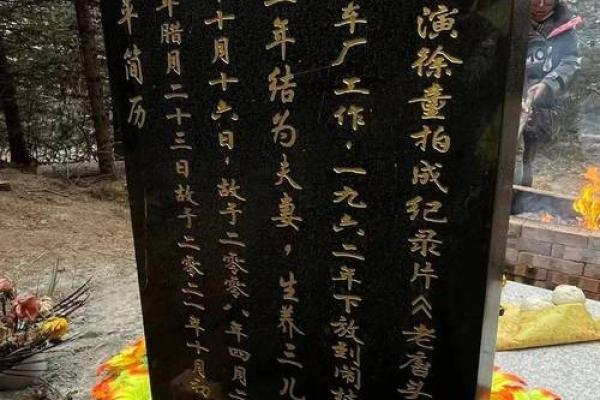 演徐童拍成纪录片《老唐头
车厂工作，一九六二年下放到闹
年结为夫妻，生养三儿
十月十六日，故于二零零八年四月二
年腊月二十三日故于二零二一年十月
年简历